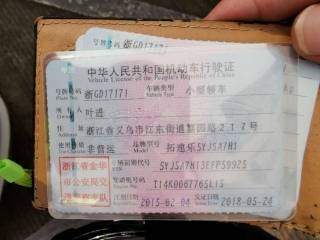 号牌号码 浙GD17171
中华人民共和国机动车行驶证
Vehicle License of the People's Republic of China
号牌号码 浙GD17171 车辆类型 小型轿车
Plate No. Vehicle Type
所有人 叶进
Owner
住址 浙江省义乌市江东街道鄱园路217号
Address
使用性质 非营运 品牌型号 拓速乐SYJSA7H1
Use Character Model
浙江省金华 车辆识别代号 5YJSA7H13EFP59925
市公安局交
发动机号码 T14K0067765L1S
注册日期 2015-02-04 发证日期 2018-05-24